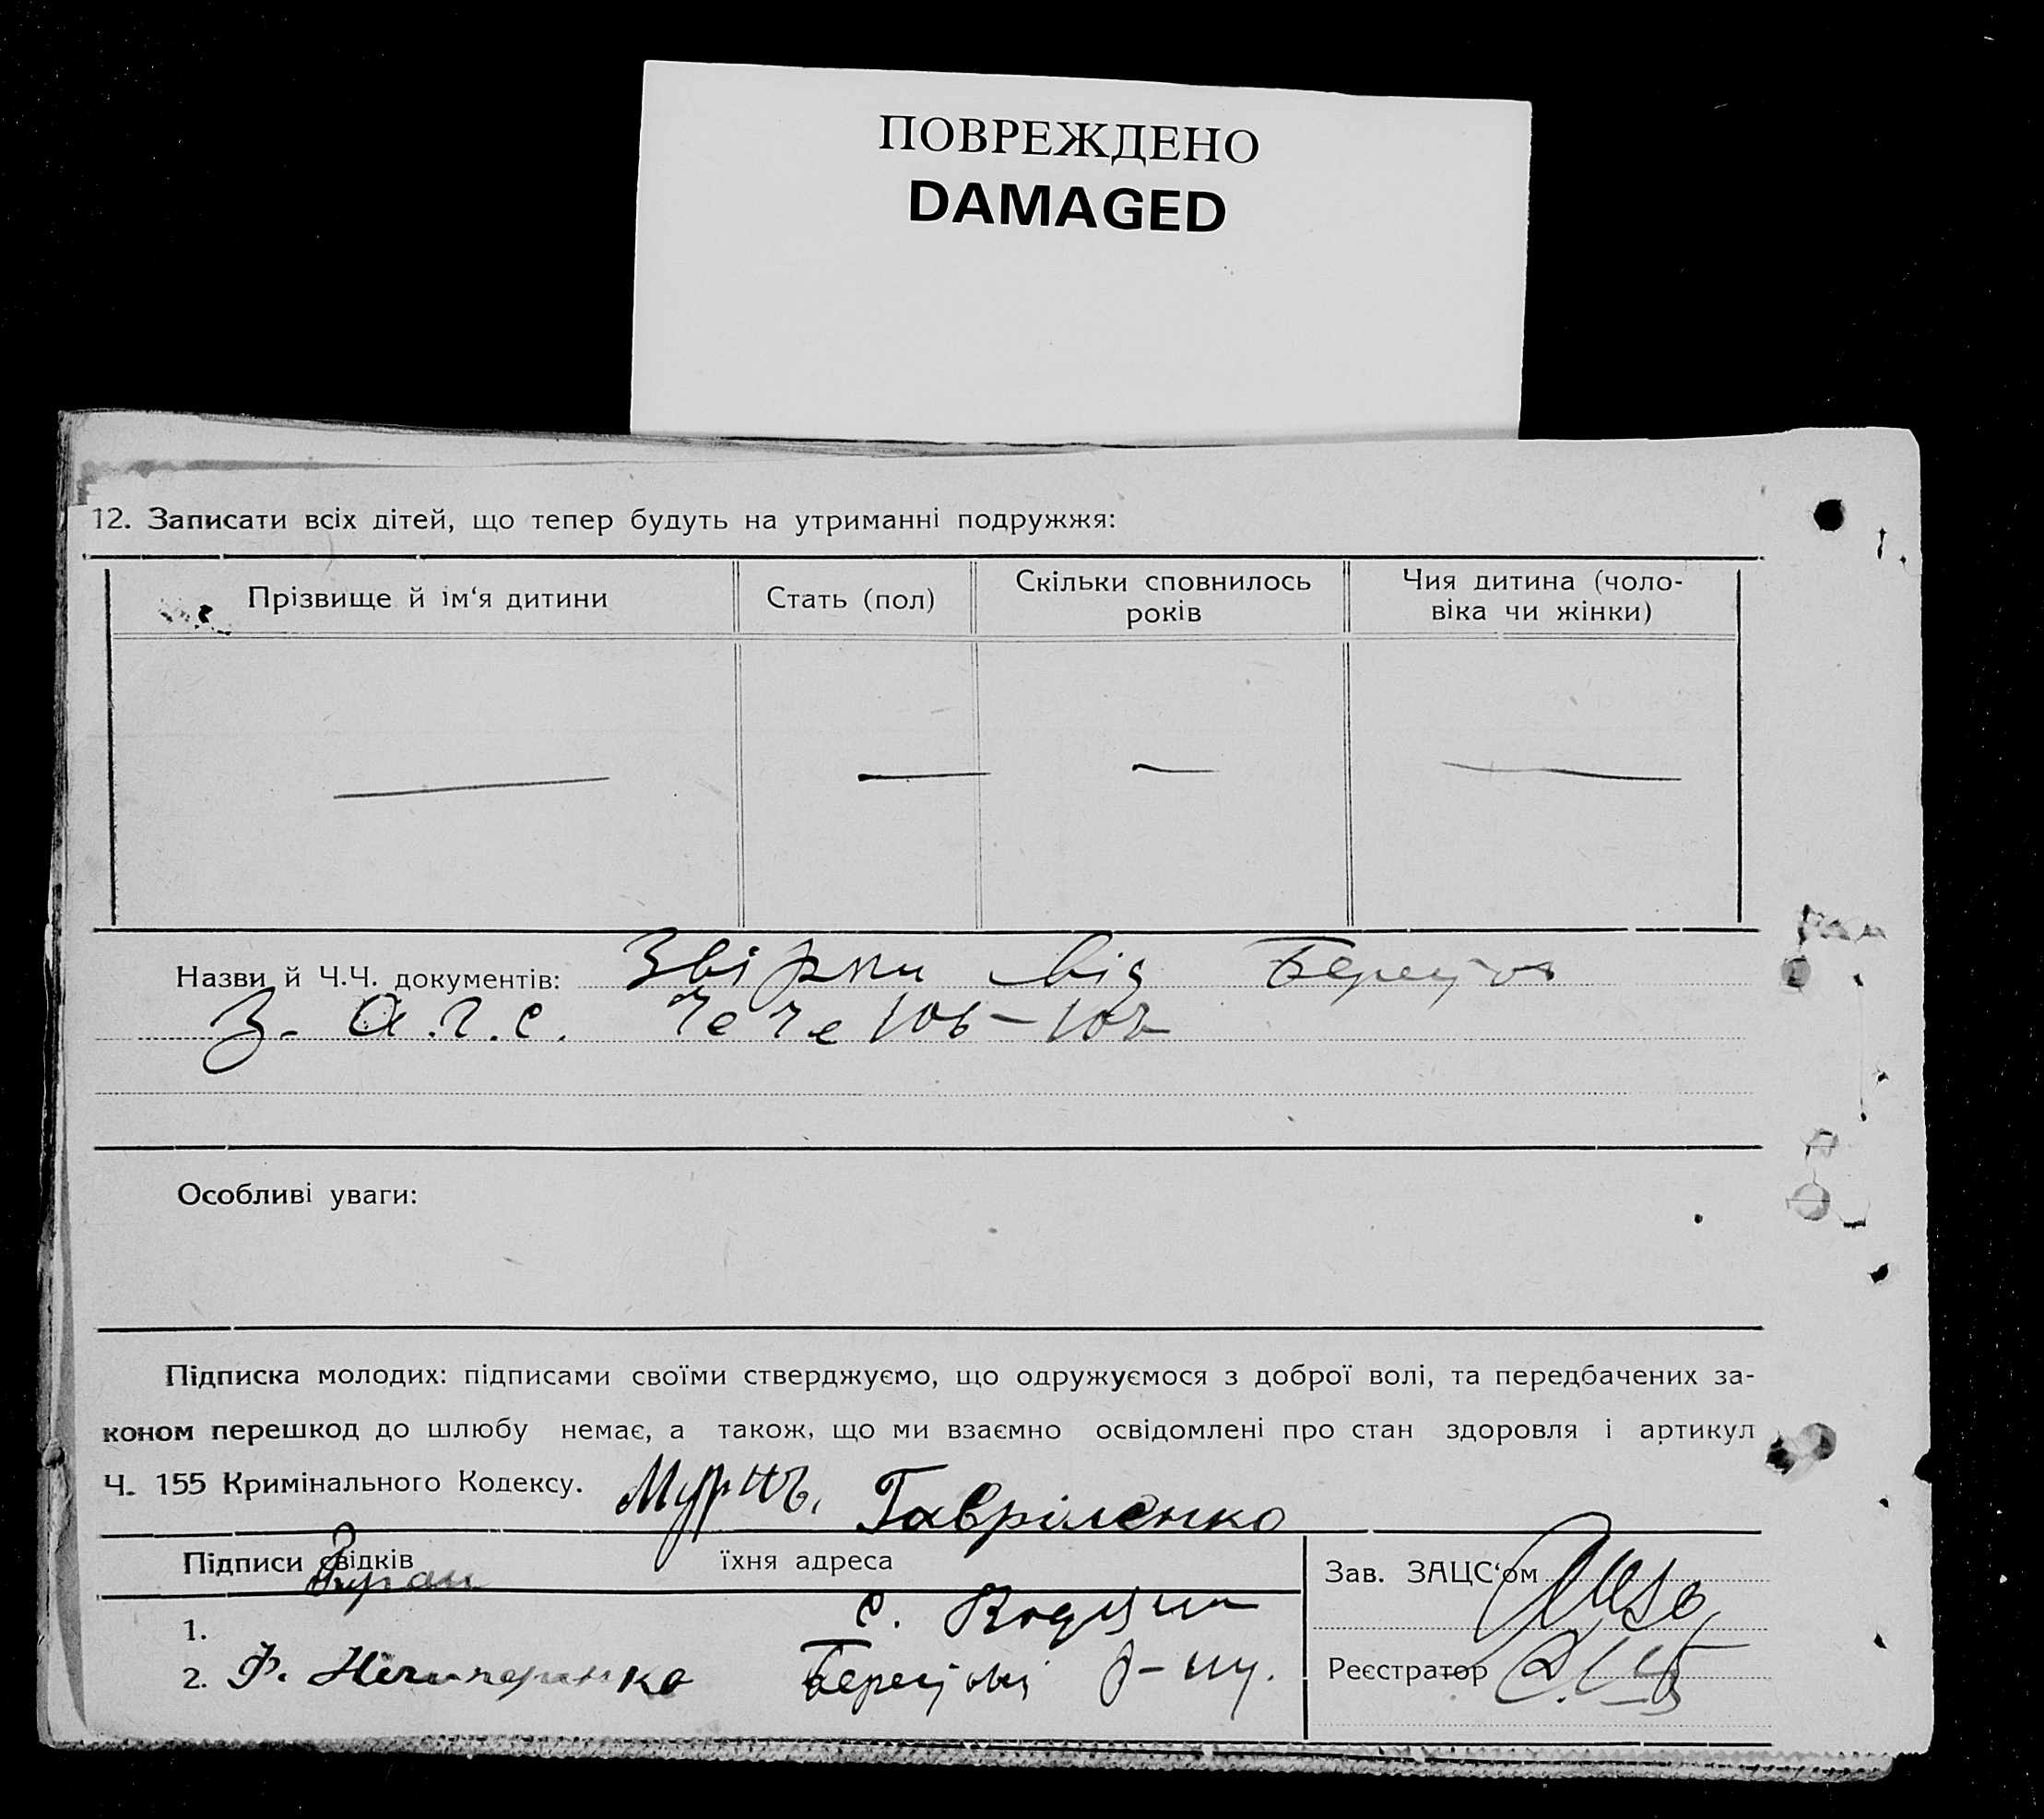 ПОВРЕЖДЕНО
DAMAGED
12. Записати всіх дітей, що тепер будуть на утриманні подружжя:
Прізвище й ім‘я дитини
Стать (пол)
Скільки сповнилось
років
Чия дитина (чоло-
віка чи жінки)
Назви й Ч.Ч. документів: від
З. А. Г. С. 106 – 107
Особливі уваги:
Підписка молодих: підписами своїми стверджуємо, що одружуємося з доброї волі, та передбачених за-
коном перешкод до шлюбу немає, а також, що ми взаємно освідомлені про стан здоровля і артикул
Ч. 155 Кримінального Кодексу.
Гавріленко
Підписи свідків їхня адреса
1. с.
2. Ф. р-ну.
Зав. ЗАЦС‘ом
Реєстратор